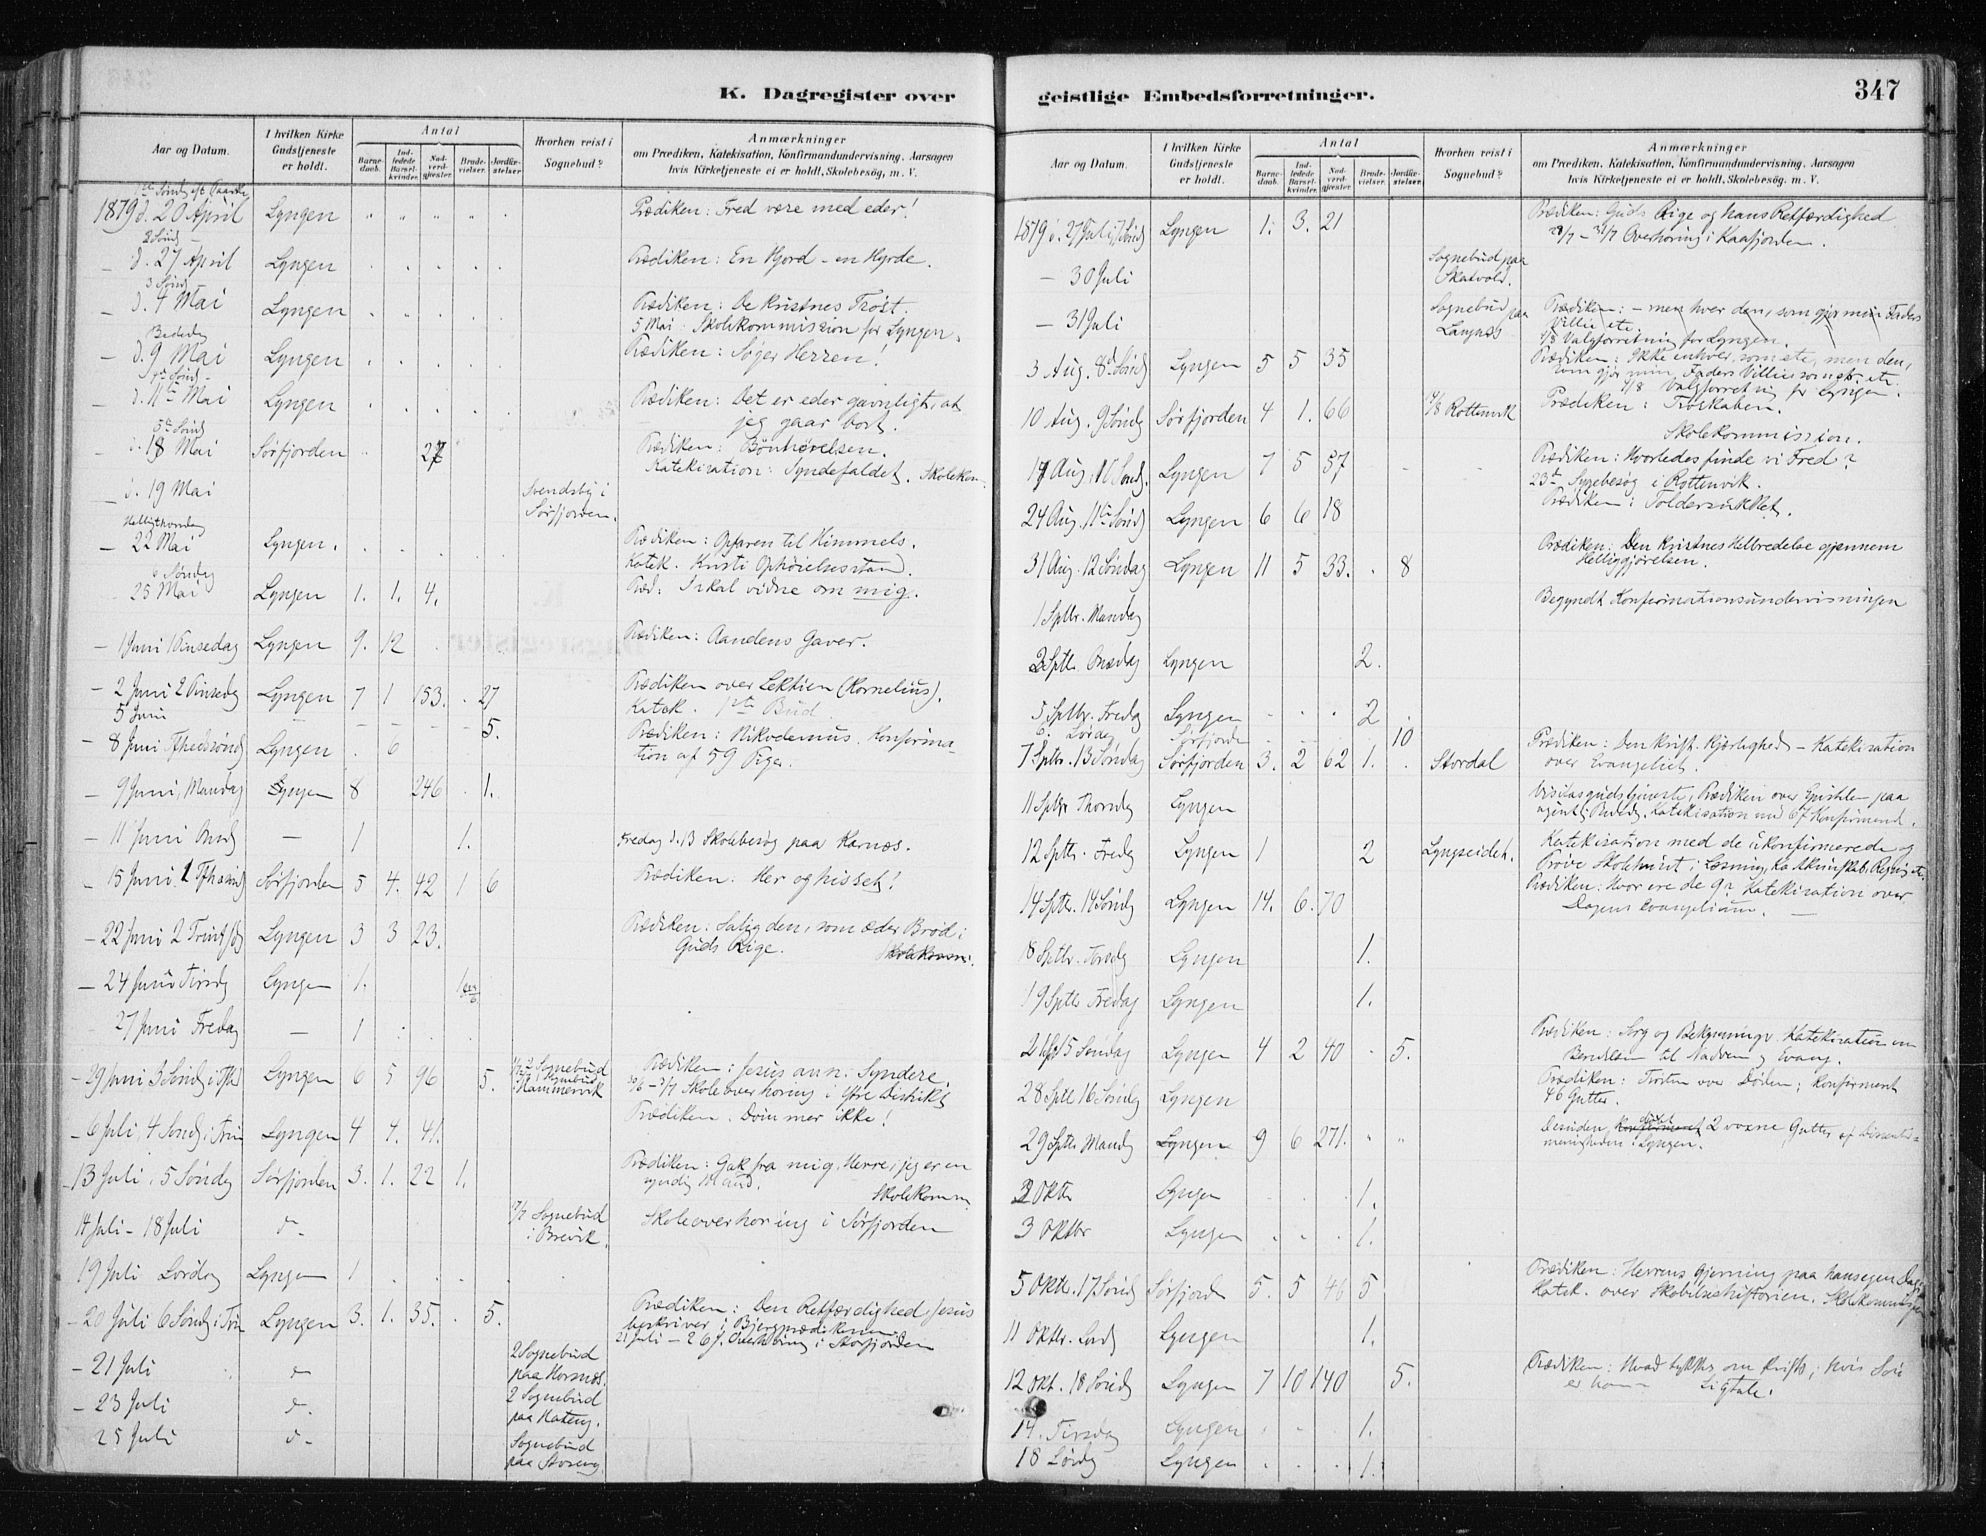 K. Dagregister over
Aar og Datum.
I hvilken Kirke Gudstjeneste er holdt.
Antal
Barnedaab.
Indledede Barselkvinder.
Nadverdgjæster.
Brudevielser.
Jordfæstelser
Hvorhen reist i Sognebud?
Anmærkninger
om Prædiken, Katekisation, Konfirmandundervisning. Aarsagen
hvis Kirketjeneste ei er holdt, Skolebesøg, m. V.
1ste Sønd eft Paaske
1879 d. 20 April Lyngen " " " " " Prædiken: Fred være med eder!
2 Sønd
– d. 27 April Lyngen . . . . . Prædiken: En Hjord – en Hyrde.
3 Sønd
– d. 4 Mai Lyngen . . . . . Prædiken: De Kristnes Trøst.
5 Mai: Skolekommission for Lyngen.
Bededag
– d. 9 Mai Lyngen . . . . . Prædiken: Søger Herren!
– d. 11te Mai Lyngen . . . . . Prædiken: Det er eder gavnligt, at
jeg gaar bort.
5te Sønd
– d. 18 Mai Sørfjorden 27 Prædiken: Bønhørelsen.
Katekisation: Syndefaldet. Skolekom.
– d. 19 Mai Svendsby i
Sørfjorden.
– 22 Mai Lyngen. . . . . . Prædiken: Opfaren til Himmels.
Katek. Kristi Ophøielsesstand.
6 Søndag
25 Mai Lyngen 1. 1. 4. Præd: I skal vidne om mig.
– 1 Juni 1 Pinsedag Lyngen 9. 12 Prædiken: Aandens Gaver.
– 2 Juni 2 Pinsedag Lyngen 7 1 153. 27 Prædiken over Lektien (Kornelius).
Katek. 1ste Bud
5 Juni – – – – 5.
– 8 Juni Lyngen . 6 Prædiken: Nikodemus. Konfirma-
tion af 59 Piger.
– 9 Juni, Mandag Lyngen 8 246 . 1.
– 11 Juni Onsd – 1 1. Fredag d. 13 Skolebesøg paa Karnæs.
– 15 Juni 1 Sørfjorden 5 4. 42 1 6 Prædiken: Her og hisset!
– 22 Juni 2 Lyngen 3 3 23. Prædiken: Salig den, som æder Brød i
Guds Rige. Skolekomm.
– 24 Juni Tirsd Lyngen 1. 1
27 Juni Fredag – 1
– 29 Juni 3 Sønd Lyngen 6 5 96 5. Sognebud
Sognebud
Hammervik
Prædiken: Jesus ann. Syndere.
30/6 – 3/7 Skoleoverhøring i Ytre Distrikt
Prædiken: Døm mer ikke!
– 6 Juli, 4 Sønd i Trin Lyngen 4 4. 41.
– 13 Juli, 5 Søndag Sørfjorden 3. 1. 22 1. Prædiken: Gak fra mig, Herre, jeg er en
syndig Mand. Skolekomm
14 Juli – 18 Juli d – Sognebud
i Brevik. Skoleoverhøring i Sørfjorden
19 Juli Lørdag Lyngen 1 . . .
– 20 Juli 6 Sønd i Trin Lyngen 3. 1. 35. . 5. Prædiken: Den Retfærdighed, Jesus
beskriver i Bjergprædikenen.
21 Juli – 26 J. Overhøring i Storfjorden
– 21 Juli d 2 Sognebud
paa Hornæs.
– 23 Juli d. 2 Sognebud
paa Hateng.
25 Juli d – Sognebud
paa Storeng
geistlige Embedsforretninger.
347
Aar og Datum.
I hvilken Kirke Gudstjeneste er holdt.
Antal
Barnedaab.
Indledede Barselkvinder.
Nadverdgjæster.
Brudevielser.
Jordfæstelser.
Hvorhen reist i Sognebud?
Anmærkninger
om Prædiken, Katekisation, Konfirmandundervisning. Aarsagen
hvis Kirketjeneste ei er holdt, Skolebesøg m. V.
1879 d. 27 Juli 7 Sønd Lyngen 1. 3. 21 Prædiken: Guds Rige og hans Retfærdighed
28/7 – 31/7 Overhøring i Kaafjorden.
– 30 Juli Sognebud paa
Skatvold.
– 31 Juli Sognebud paa
Langnæs
Prædiken: – men hver den, som gjør min Faders
Villie etc.
1/8 Valgforretning for Lyngen.
3 Aug. 8d Sønd Lyngen 5 5 35 Prædiken: Ikke enhver, som etc, men den,
som gjør min Faders Villie
4/8 Valgforretning for Lyngen.
10 Aug. 9 Sønd Sørfjorden 4 1. 66 Rottenvik Prædiken: Troskaben.
Skolekommission.
17 Aug. 10 Sønd. Lyngen 7 5 57 – Prædiken: Hvorledes finde vi Fred?
23de Sygebesøg i Rottenvik.
24 Aug. 11te Sønd Lyngen 6 6 18 Prædiken: Toldersukket.
31 Aug. 12 Søndag Lyngen 11 5 33. . 8 Prædiken: Den Kristnes Helbredelse gjennem
Helliggjørelsen.
1 Sptbr. Mandag Begyndt Konfirmationsundervisningen
3 Sptbr. Onsdag Lyngen 2.
5 Sptbr. Fredag Lyngen . . . 2 .
6. Lørdag Sørfjorden 10
7 Sptbr. 13 Søndag Sørfjorden 3. 2 62 1. . Stordal Prædiken: Den krist. Kjærlighed – Katekisation
over Evangeliet.
11 Sptbr Thorsdag Lyngen Visitasgudstjeneste, Prædiken over Epistlen paa
Katekisation med 67 Konfirmand.
12 Sptbr. Fredag Lyngen 1 2 Lyngseidet. Katekisation med de ukonfirmerede og
14 Sptbr. 14 Sønd Lyngen 14. 6. 70 Prædiken: Hvor ere de 9? Katekisation over
Dagens Evangelium. –
18 Sptbr. Lyngen 1.
19 Sptbr Fredag Lyngen 1.
21 15 Søndag Lyngen 4 2 40 . 5. Prædiken: Sorg og Bekymring. Katekisation
28 Sptb 16 Søndag Lyngen Prædiken: Trøsten over Døden; Konfirmeret
46 Gutter.
29 Sptbr Mandag Lyngen 9 6 271. " " Desuden 2 voxne Gutter af
menigheden i Lyngen.
2 Oktbr Lyngen . . . 1.
3 Oktbr Lyngen . . . 1.
5 Oktbr. 17 Sønd Sørfjorden 5. 5 46 5 Prædiken: Herrens Gjerning paa hans egen Dag.
Katek. over Skabelseshistorien. Skolekommission
11 Oktbr. Lørd Lyngen 1.
12 Okt. 18 Sønd Lyngen 7 10 140 5. Prædiken: Hvad tykkes om Kristo, hvis Søn
er han – Ligtale.
14. Tirsdag Lyngen . . . 1.
18 Lørdag Lyngen . . . 1.